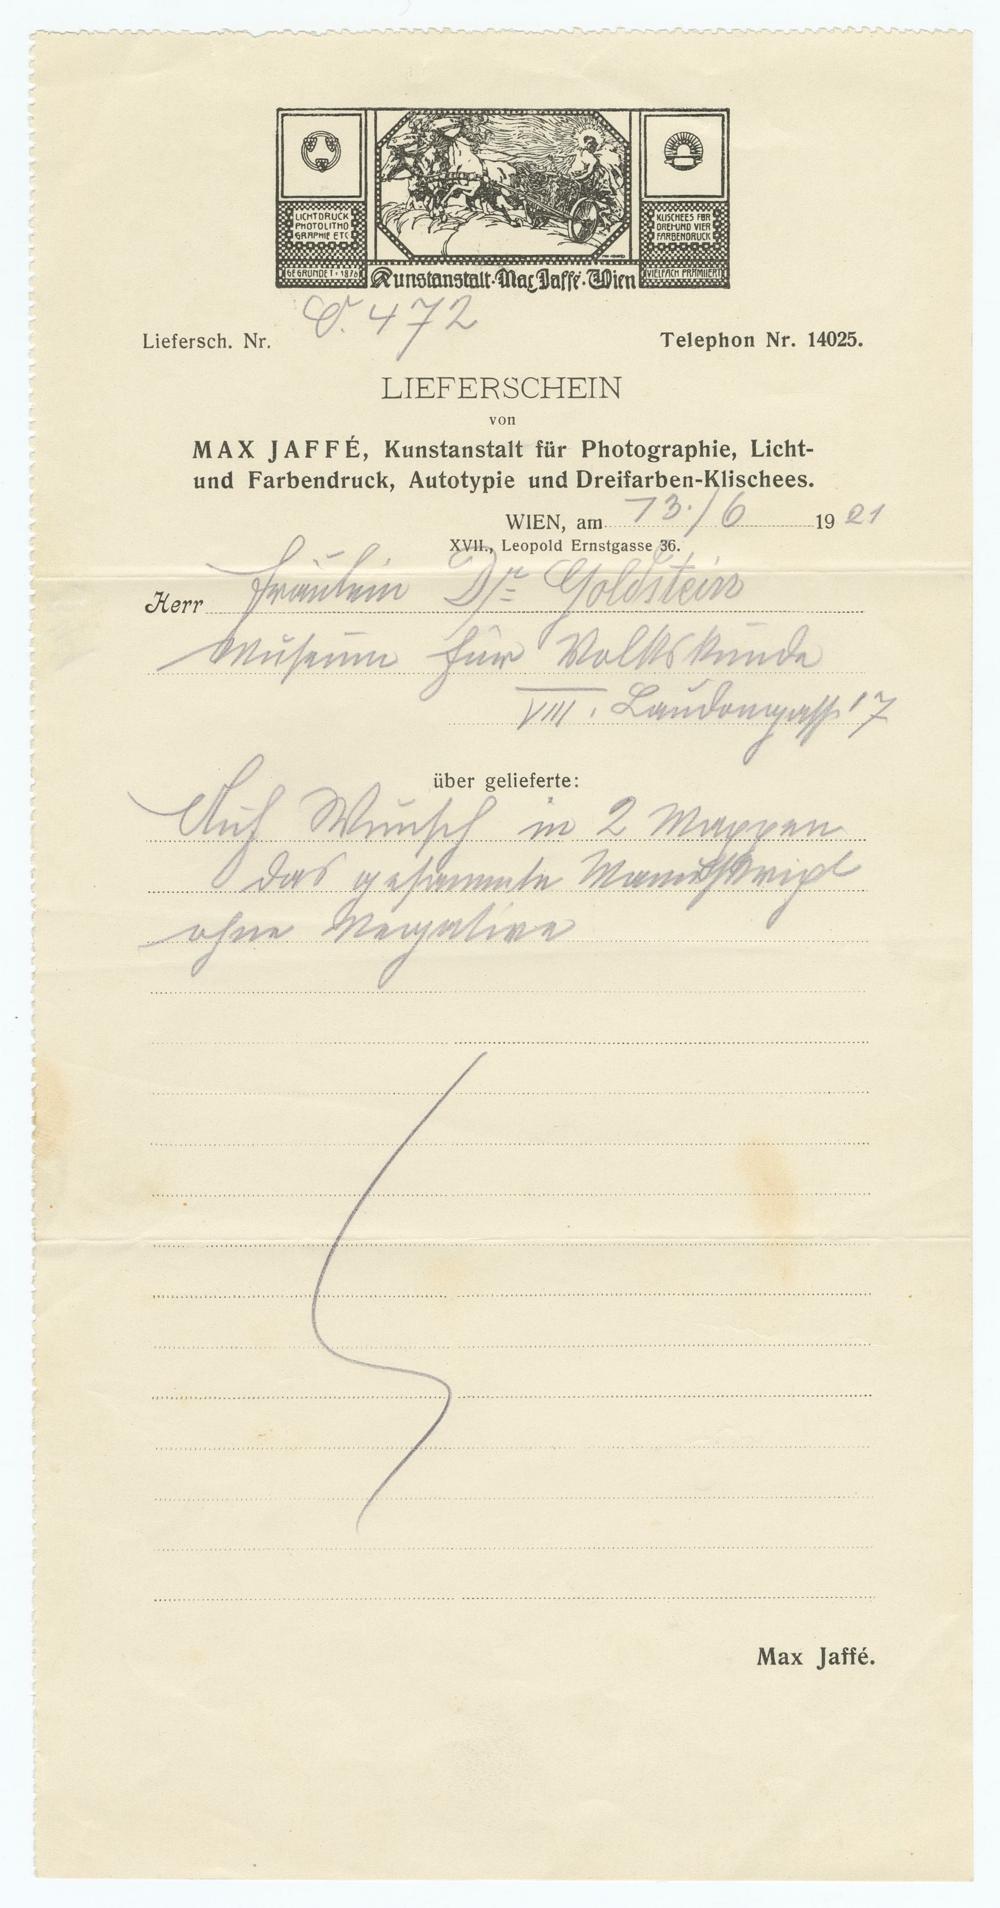 LICHTDRUCK
PHOTOLITHO
GRAPHIE ETC
GEGRÜNDET · 1878
Kunstanstalt · Max Jaffé · Wien
KLISCHEES FÜR
DREI UND VIER
FARBENDRUCK
VIELFACH PRÄMIIERT
Liefersch. Nr. 472
Telephon Nr. 14025.
LIEFERSCHEIN
von
MAX JAFFÉ, Kunstanstalt für Photographie, Licht-
und Farbendruck, Autotypie und Dreifarben-Klischees.
WIEN, am 13./6 1921
XVII., Leopold Ernstgasse 36.
Herr Fräulein Dr. Goldstein
Museum für Volkskunde
VIII. Laudongasse 17
über gelieferte:
Auf Wunsch in 2 Mappen
das gesammte Manuskript
ohne Negative
Max Jaffé.